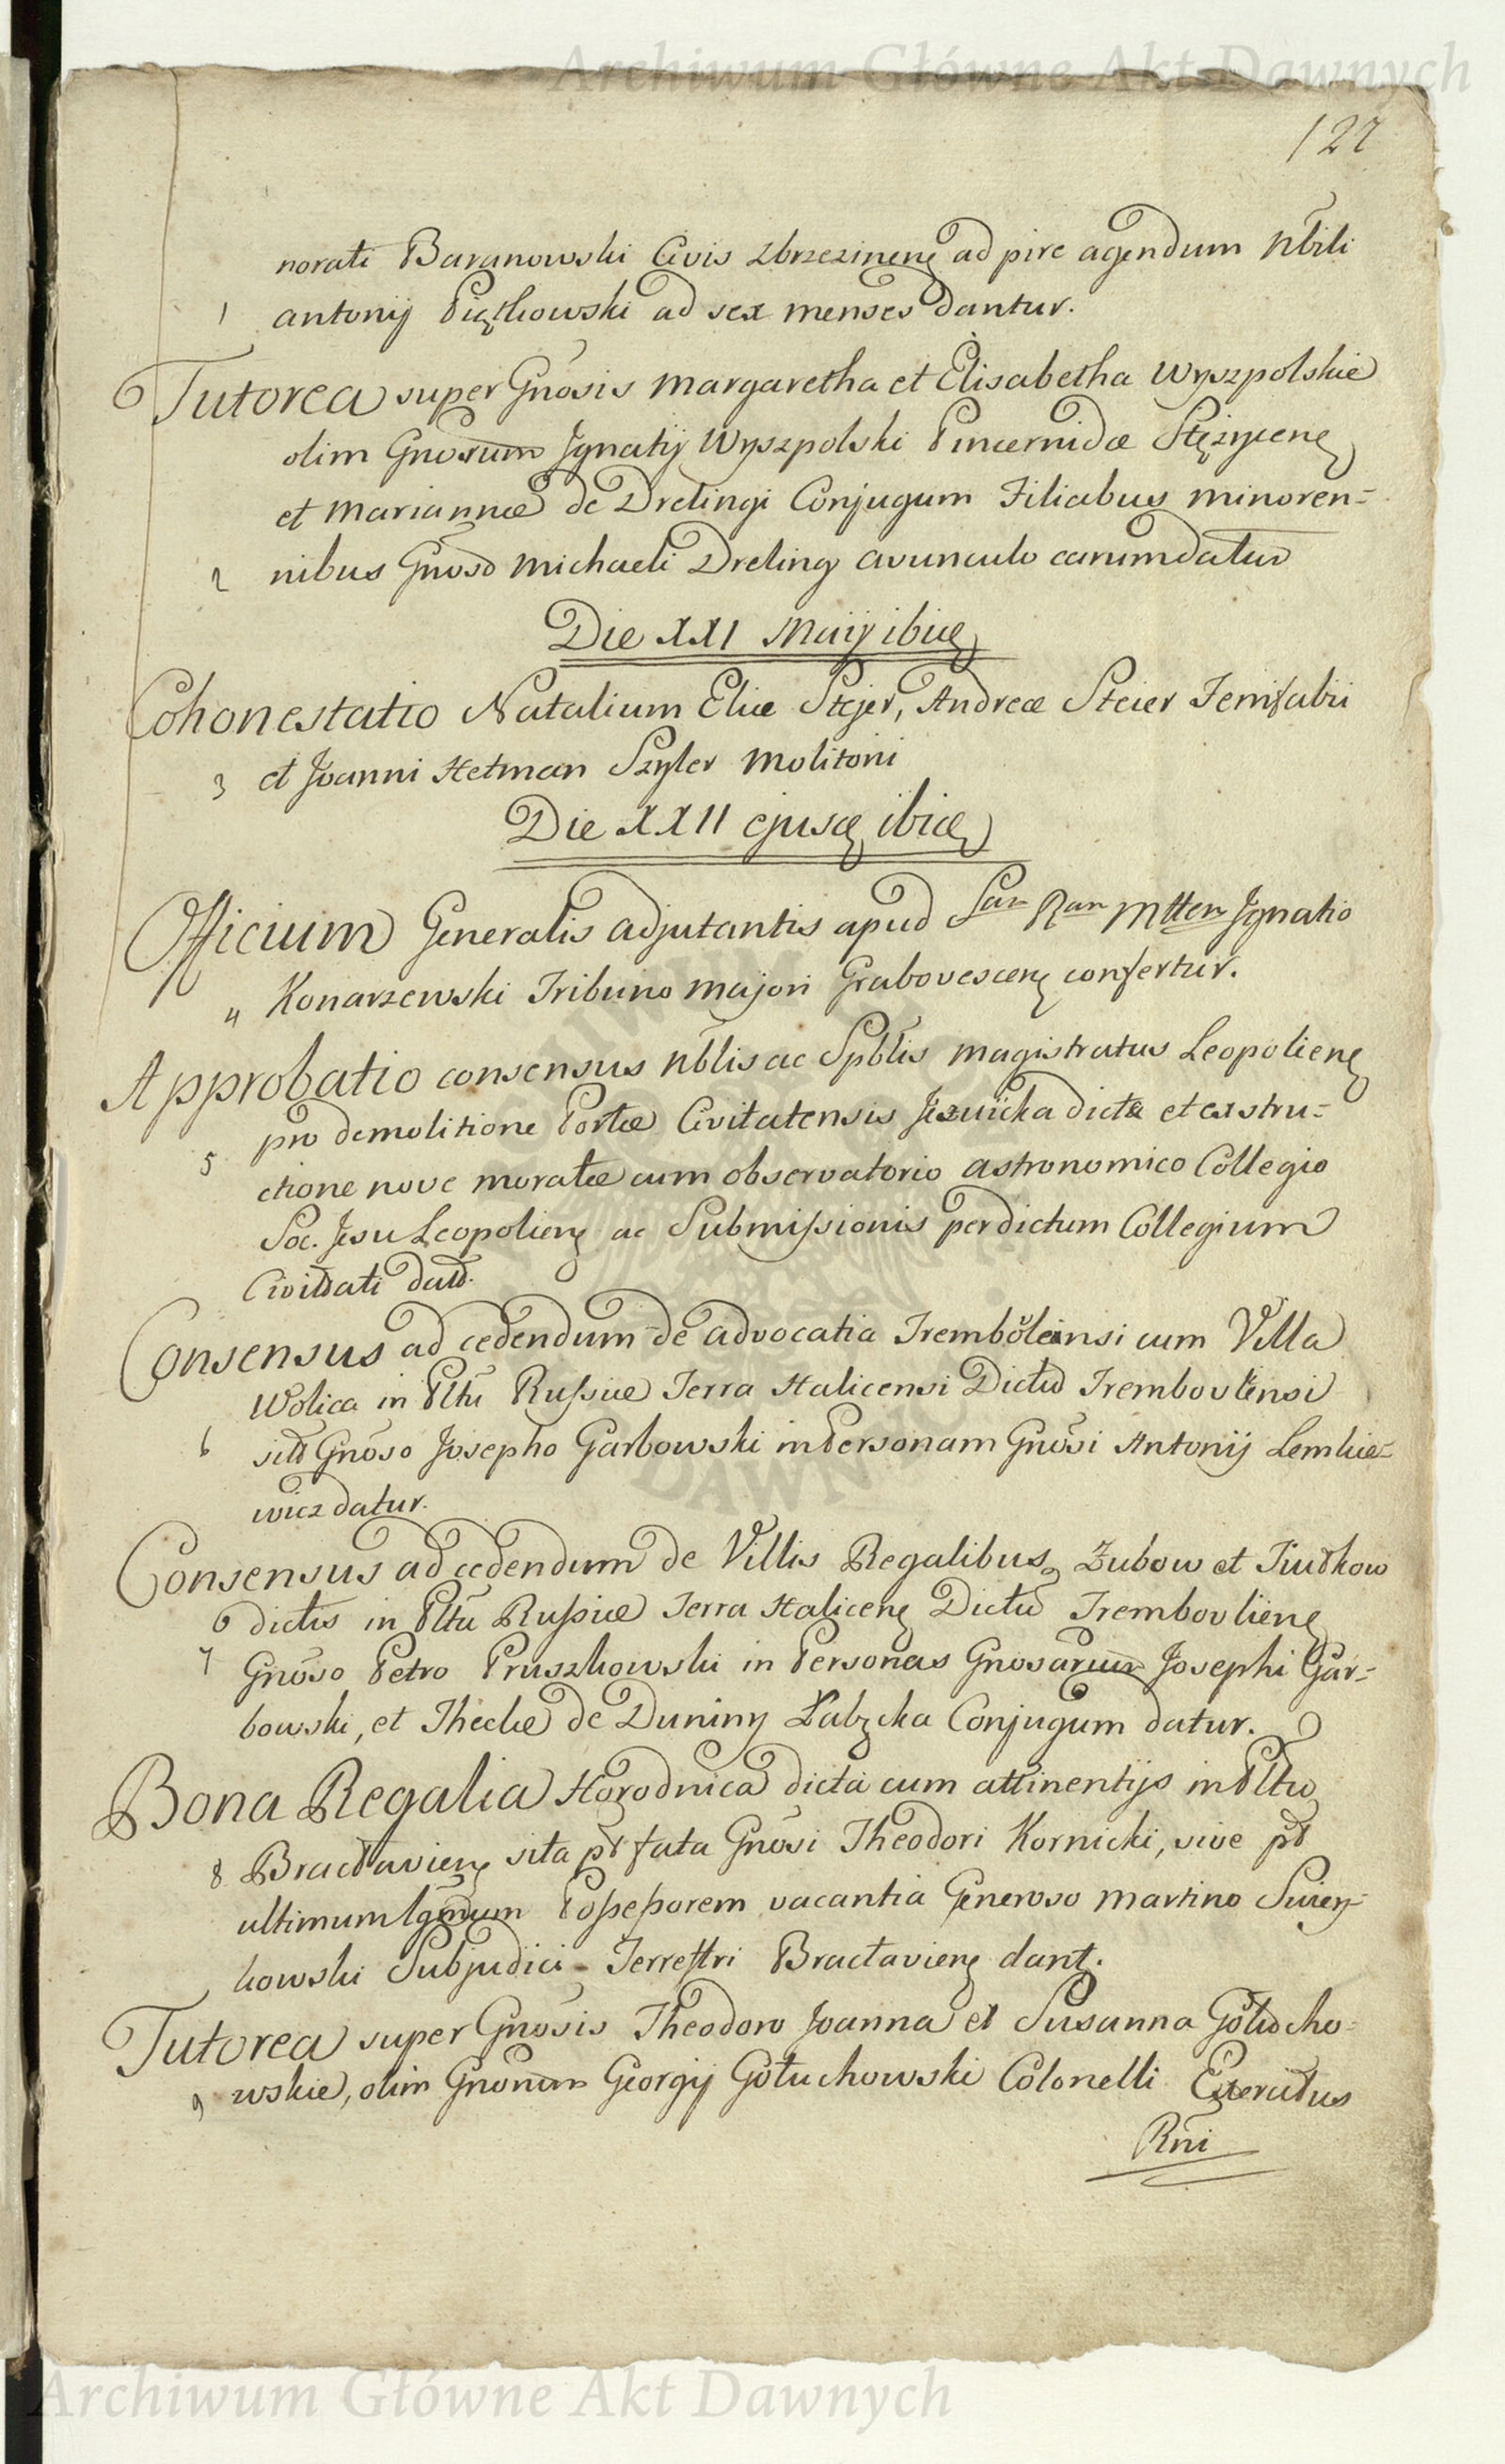 Archiwum Główne Akt Dawnych
127
norati Baranowski Civis Zbrzezinen ad pire agendum Nbili
1 antonij Piątkowski ad sex menses dantur.
Tutorea super Gnosis Margaretha et Elisabetha Wyszpolskie
olim Gnosum Jgnatij Wyszpolski Pincernidæ Stężycen
et Mariannæ de Drelingi Conjugum Filiabus minoren=
2 nibus Gnoso Michaeli Dreling avunculo earum datur
Die XXI Maij ibid
Cohonestatio Natalium Eliæ Stejer, Andreæ Steier Ferrifabri
3 et Joanni Hetman Szyler Molitori
Die XXII ejusd ibid
Officium Generalis adjutantis apud San Ran Mtten Jgnatio
4 Konarzewski Tribuno majori Grabovescen confertur.
Approbatio consensus Nblis ac Spblis magistratus Leopolien
pro demolitione Portæ Civitatensis Jezuicka dictæ et exstru=
5 ctione novæ muratæ cum observatorio astronomico Collegio
Soc. Jesu Leopolien ac Submissionis per dictum Collegium
Civitati datæ.
Consensus ad cedendum de advocatia Tremboleinsi cum Villa
Wolica in Pltu Russiæ Terra Halicensi Dictu Trembovlensi
6 sitis Gnoso Josepho Garbowski in Personam Gnosi Antonij Lemkie=
wicz datur.
Consensus ad cedendum de Villis Regalibus Zubow et Tiutkow
6 dictis in Pltu Russiæ Terra Halicen Dictu Trembovlien
7 Gnoso Petro Pruszkowski in Personas Gnosarum Josephi Gar=
bowski, et Theclæ de Duniny Łabęcka Conjugum datur.
Bona Regalia Horodnica dicta cum attinentijs in Pltu
8 Bractavien sita pt fata Gnosi Theodori Kornicki, sive pt
ultimum lgmum Possessorem vacantia Generoso Martino Swiey=
kowski Subjudici Terrestri Bractavien dant.
Tutorea super Gnosis Theodoro Joanna et Susanna Gołucho=
9 wskie, olim Gnorum Georgij Gołuchowski Colonelli Exercitus
Rni
Archiwum Główne Akt Dawnych